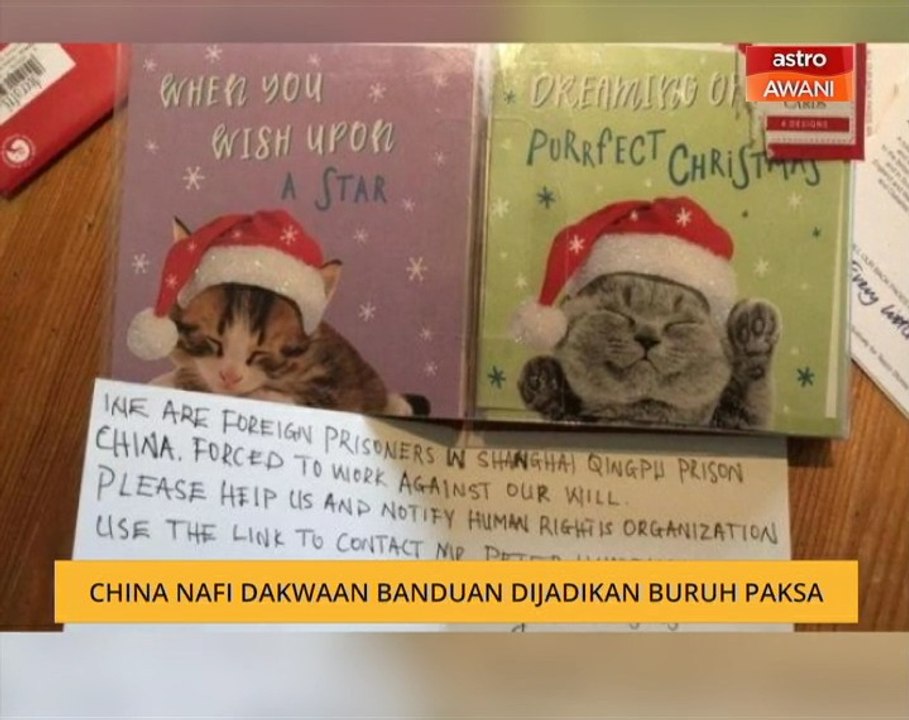 WHEN YOU
WISH UPON
A STAR
DREAMING OF
PURRFECT CHRISTMAS
astro
AWANI
CARDS
4 DESIGNS
WE ARE FOREIGN PRISONERS IN SHANGHAI QINGPU PRISON
CHINA. FORCED TO WORK AGAINST OUR WILL.
PLEASE HELP US AND NOTIFY HUMAN RIGHTS ORGANIZATION
USE THE LINK TO CONTACT MR PETER
CHINA NAFI DAKWAAN BANDUAN DIJADIKAN BURUH PAKSA